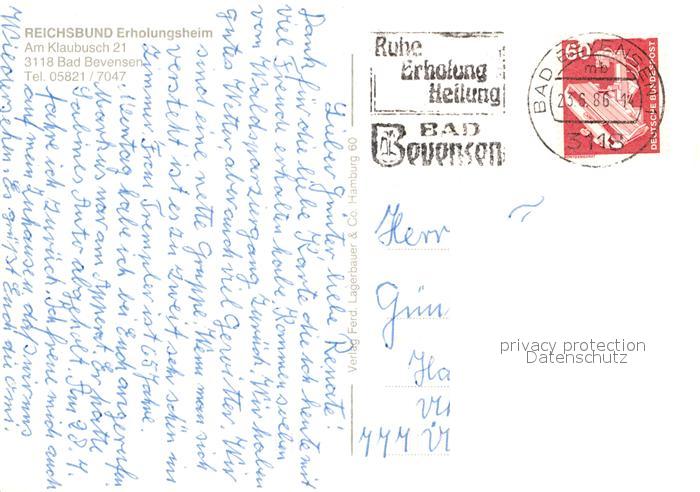 REICHSBUND Erholungsheim
Am Klaubusch 21
3118 Bad Bevensen
Tel. 05821 / 7047
Lieber Günter, liebe Renate!
Dank für die liebe Karte die ich heute mit
viel Freude erhalten habe. Kommen soeben
vom Waldspaziergang zurück. Wir haben
gutes Wetter aber auch viel Gewitter. Wir
sind eine nette Gruppe. Wenn man sich
versteht ist es zu zweit sehr schön im
Zimmer. Frau Trempler ist 65 Jahre.
habe ich bei Euch angerufen
Markus war am Apperat. Er hatte
Sabines Auto abgeholt. Am 28.
fahre ich zurück. Ich freue mich auch
auf mein Zuhause u. das wir uns
Wiedersehen. Es grüßt Euch die Omi.
Verlag Ferd. Lagerbauer & Co. Hamburg 60
Ruhe
Erholung
Heilung
BAD
Bevensen
BAD BEVENSEN
mb
23.6.86-14
3118
60
DEUTSCHE BUNDESPOST
Herr
Gün
Ha
privacy protection
Datenschutz